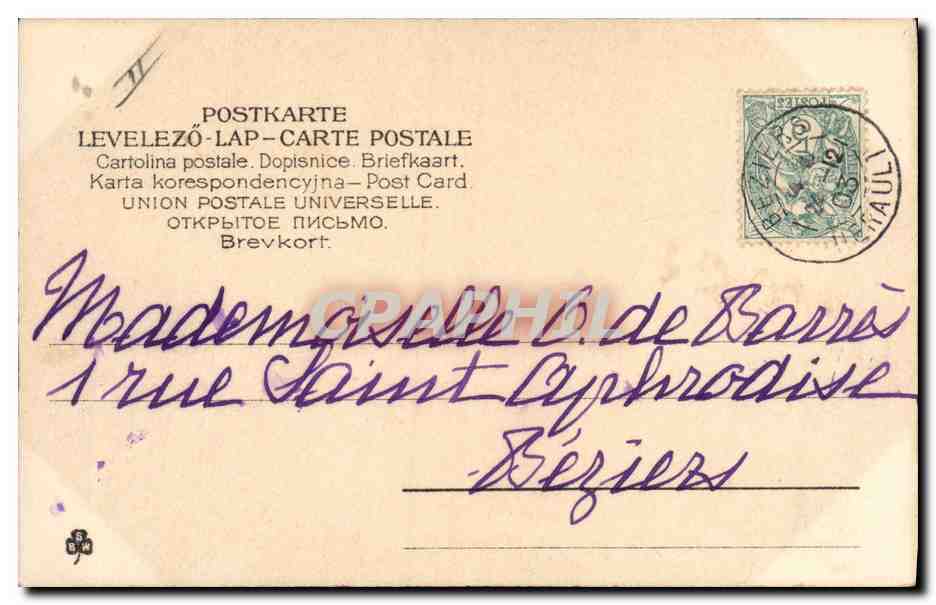 II
POSTKARTE
LEVELEZŐ-LAP-CARTE POSTALE
Cartolina postale. Dopisnice. Briefkaart.
Karta korespondencyjna-Post Card
UNION POSTALE UNIVERSELLE.
ОТКРЫТОЕ ПИСЬМО.
Brevkort.
POSTES
BEZIERS
12
03
HERAULT
CPAPHIL
Mademoiselle de Barrès
1 rue Saint Aphrodise
Béziers
S
B W